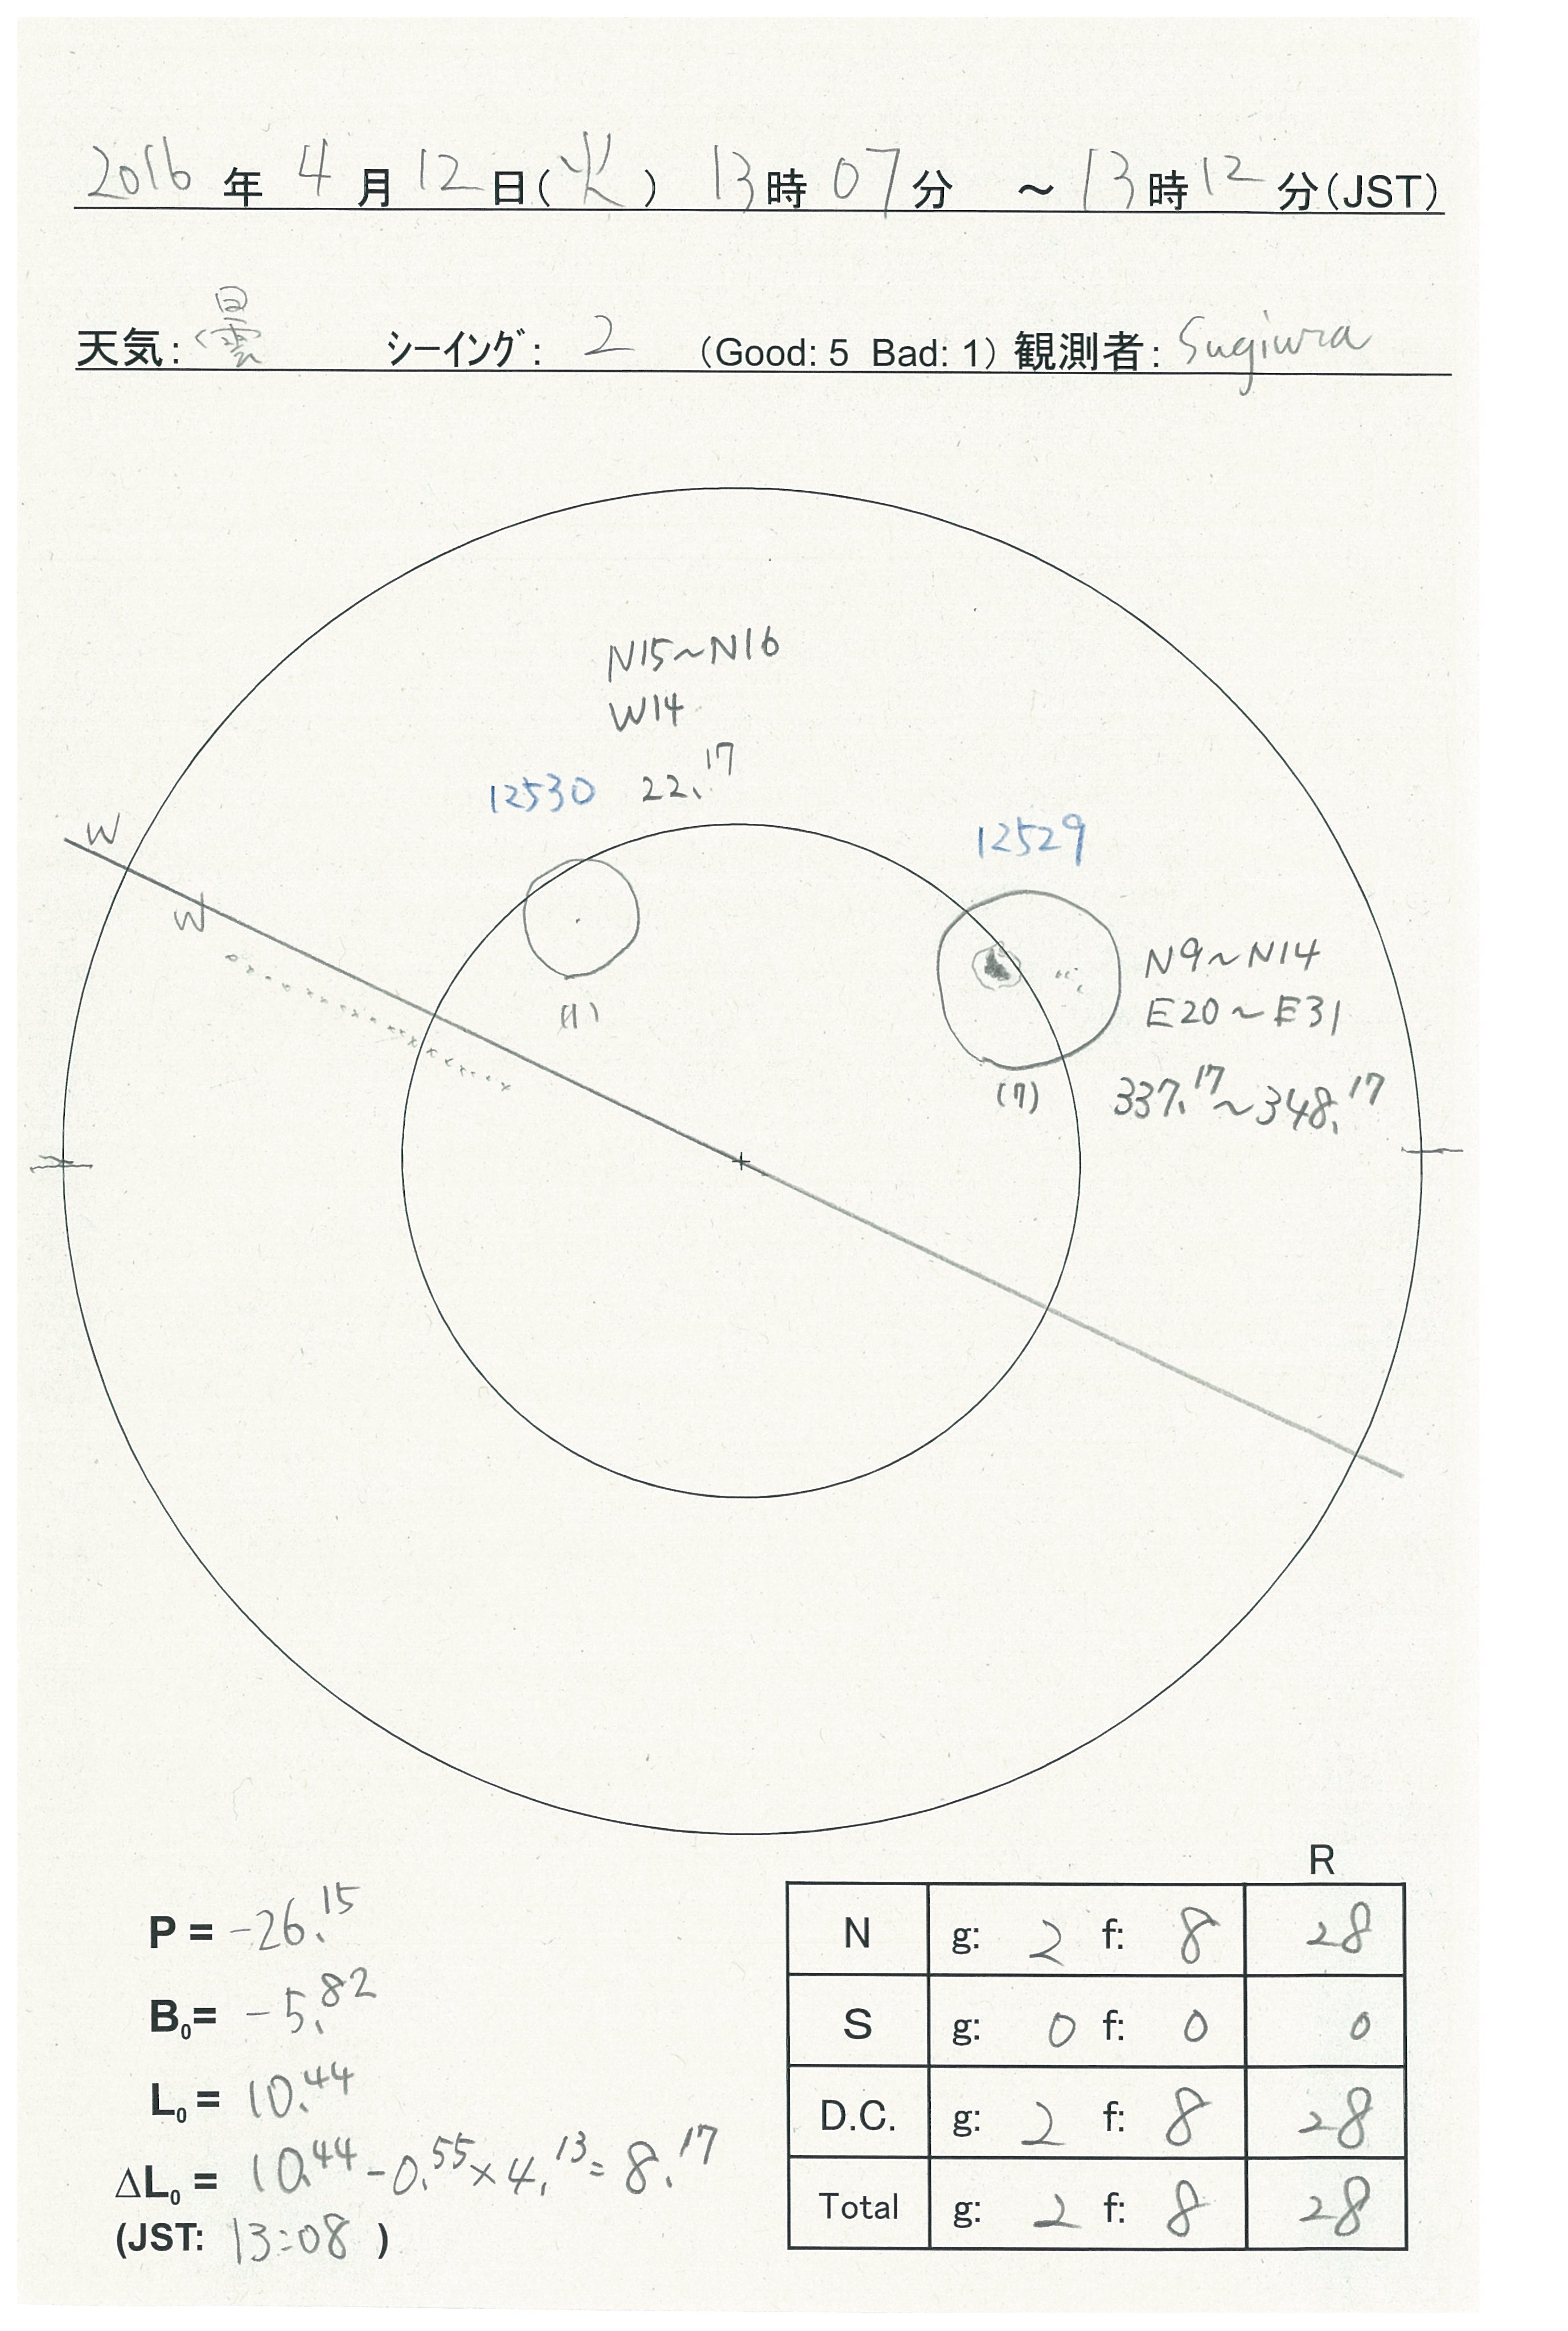 2016 年 4 月 12 日(火) 13時 07分 ～ 13時 12分(JST)
天気: 曇 シーイング: 2 (Good: 5 Bad: 1) 観測者: Sugiura
N15~N16
W14
12530 22.17
12529
W
W
N9~N14
E20~E31
(1)
(7)
337.17~348.17
R
P = -26.15
B0= -5.82
L0 = 10.44
ΔL0 = 10.44-0.55×4.13=8.17
(JST: 13:08)
N g: 2 f: 8 28
S g: 0 f: 0 0
D.C. g: 2 f: 8 28
Total g: 2 f: 8 28